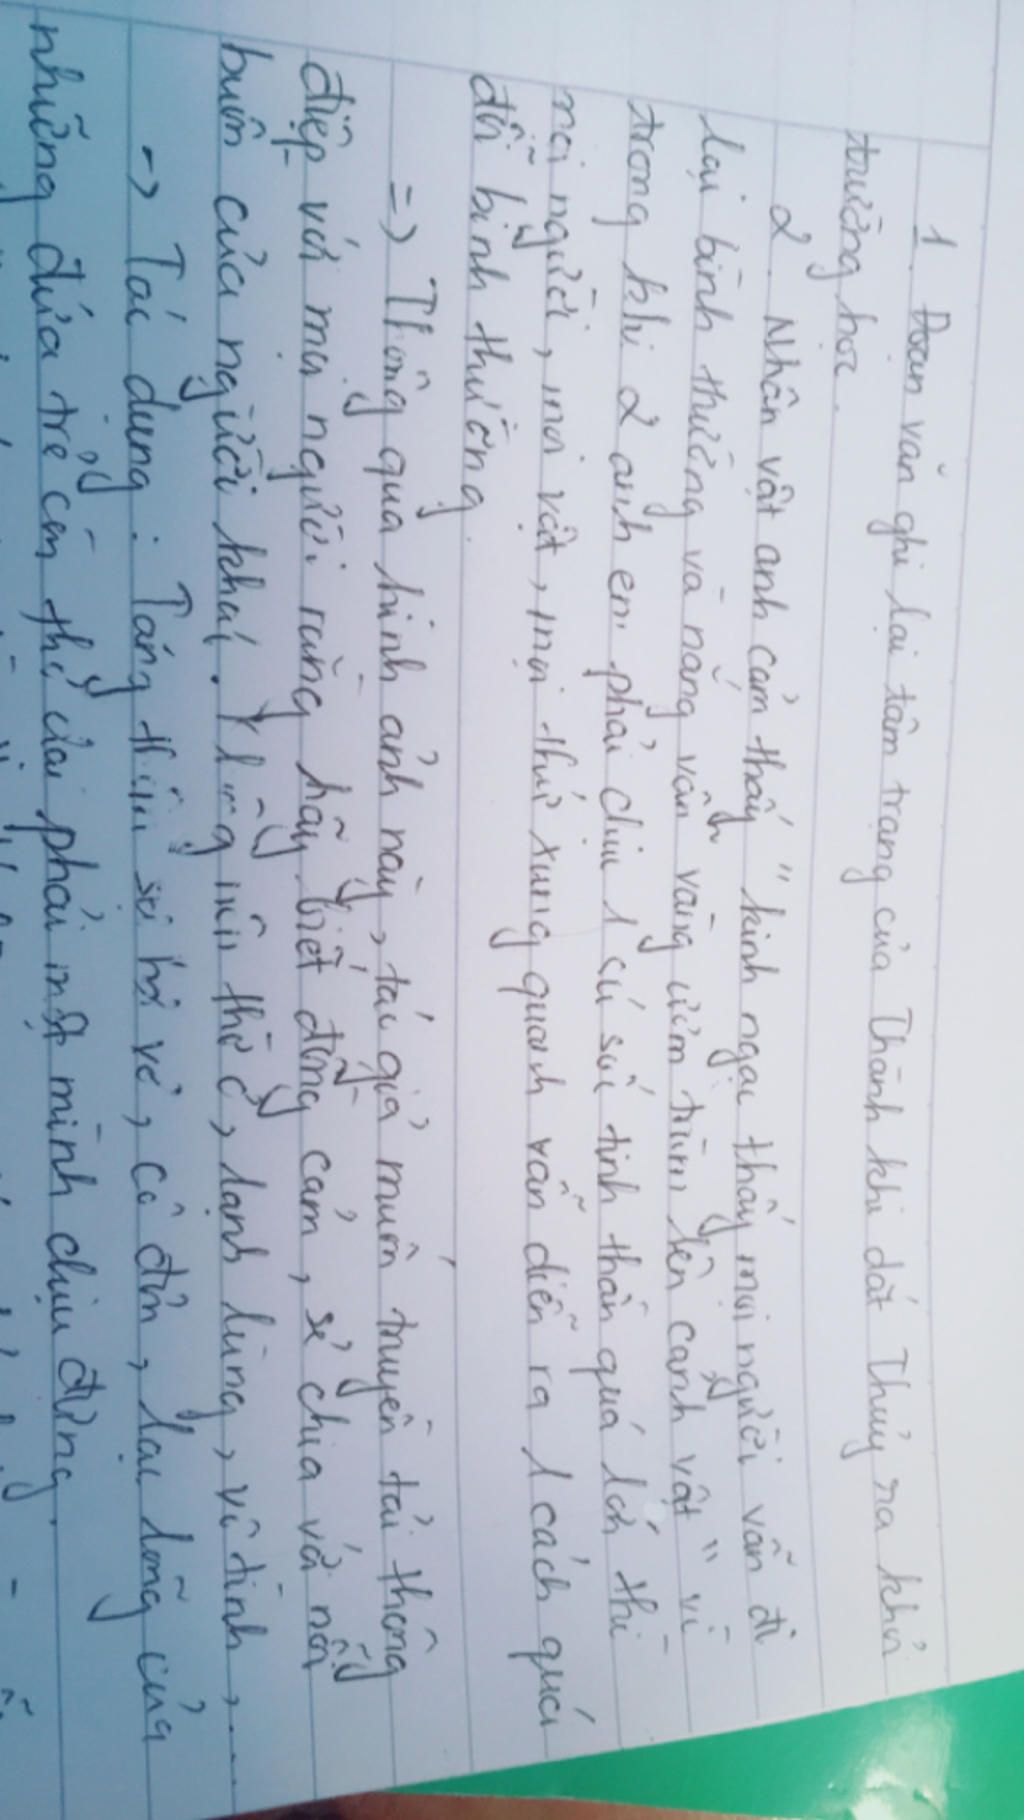 1. Đoạn văn ghi lại tâm trạng của Thành khi dắt Thuỷ ra khỏi
trường học.
2. Nhân vật anh cảm thấy "kinh ngạc thấy mọi người vẫn đi
lại bình thường và nắng vẫn vàng ươm trùm lên cảnh vật" vì
trong khi 2 anh em phải chịu 1 cú sốc tinh thần quá lớn thì
mọi người, mọi vật, mọi thứ xung quanh vẫn diễn ra 1 cách quá
đỗi bình thường.
=> Thông qua hình ảnh này, tác giả muốn truyền tải thông
điệp với mọi người rằng hãy biết đồng cảm, sẻ chia với nỗi
buồn của người khác. Không nên thờ ơ, lạnh lùng, vô tình,...
-> Tác dụng: Tăng thêm sự bơ vơ, cô đơn, lạc lõng của
những đứa trẻ còn thơ dại phải một mình chịu đựng.